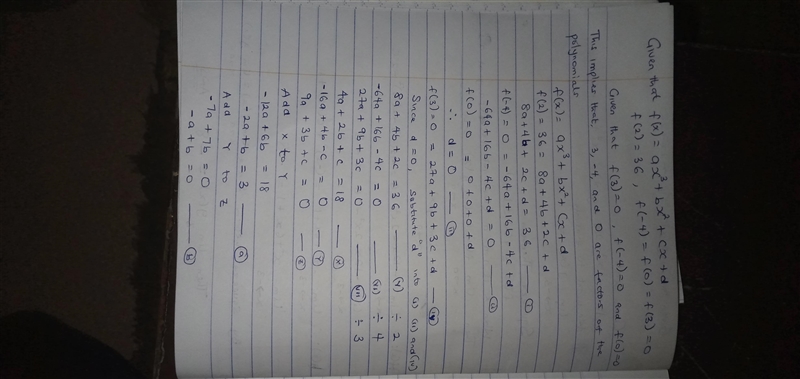 Given that f(x) = ax³ + bx² + cx + d
f(2) = 36, f(-4) = f(0) = f(3) = 0
Given that f(3) = 0, f(-4) = 0 and f(0) = 0
This implies that, 3, -4, and 0 are factors of the
polynomials
f(x) = ax³ + bx² + cx + d
f(2) = 36 = 8a + 4b + 2c + d
8a + 4b + 2c + d = 36 — (i)
f(-4) = 0 = -64a + 16b - 4c + d
-64a + 16b - 4c + d = 0 — (ii)
f(0) = 0 = 0 + 0 + 0 + d
∴ d = 0 — (iii)
f(3) = 0 = 27a + 9b + 3c + d — (iv)
Since d = 0, Substitute "d" into (i) (ii) and (iv)
8a + 4b + 2c = 36 — (v) ÷ 2
-64a + 16b - 4c = 0 — (vi) ÷ 4
27a + 9b + 3c = 0 — (vii) ÷ 3
4a + 2b + c = 18 — (x)
-16a + 4b - c = 0 — (Y)
9a + 3b + c = 0 — (z)
Add x to Y
-12a + 6b = 18
-2a + b = 3 — (a)
Add Y to z
-7a + 7b = 0
-a + b = 0 — (b)